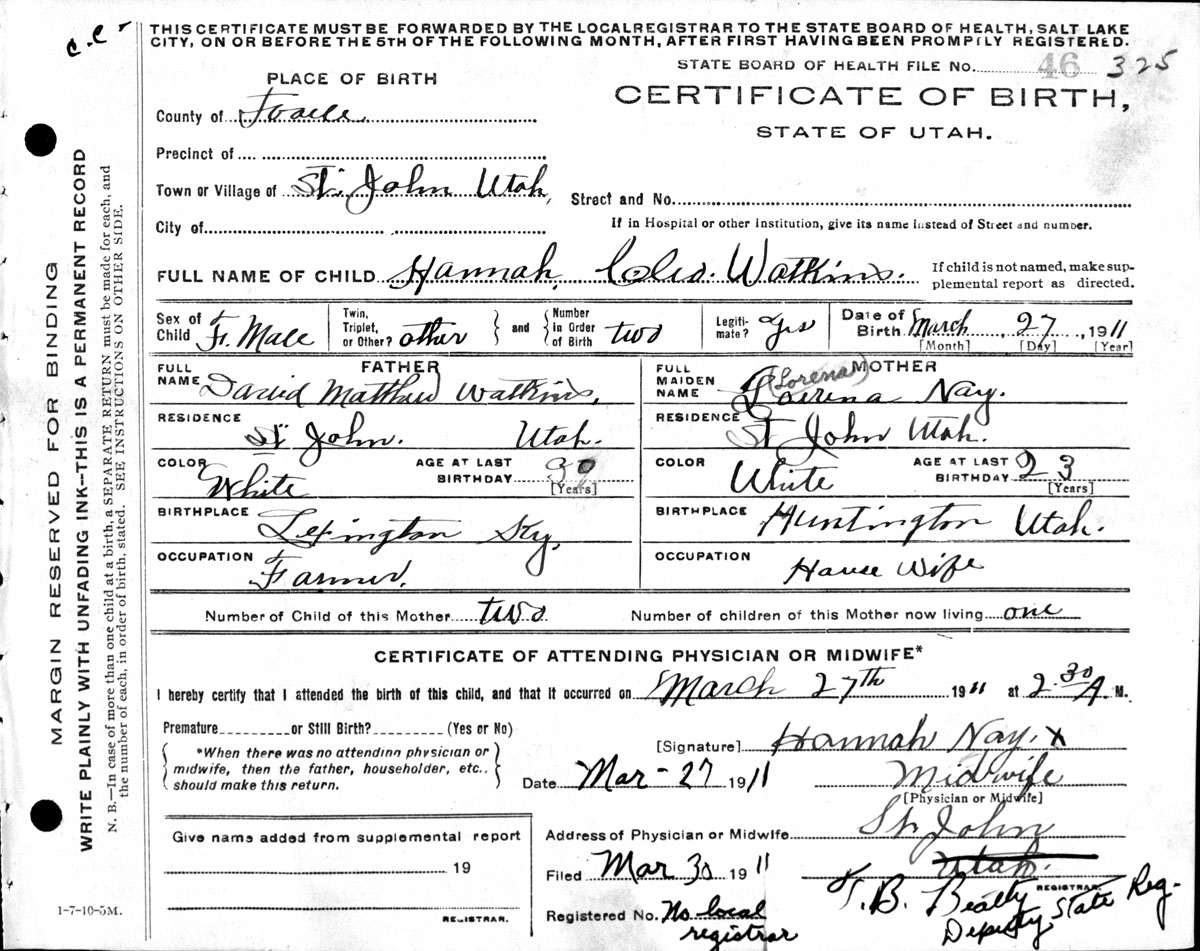 C.C.
THIS CERTIFICATE MUST BE FORWARDED BY THE LOCAL REGISTRAR TO THE STATE BOARD OF HEALTH, SALT LAKE
CITY, ON OR BEFORE THE 5TH OF THE FOLLOWING MONTH, AFTER FIRST HAVING BEEN PROMPTLY REGISTERED.
STATE BOARD OF HEALTH FILE No. 46 325
PLACE OF BIRTH
CERTIFICATE OF BIRTH,
STATE OF UTAH.
County of Tooele
Precinct of
Town or Village of St. John Utah
Street and No.
City of
If in Hospital or other Institution, give its name instead of Street and number.
FULL NAME OF CHILD Hannah Cleo. Watkins.
If child is not named, make sup-
plemental report as directed.
Sex of Child F. Male
Twin, Triplet, or Other? other
and
Number in Order of Birth two
Legiti- mate? yes
Date of Birth March, 27, 1911
[Month] [Day] [Year]
FATHER
FULL NAME David Matthew Watkins,
RESIDENCE St John. Utah.
COLOR White
AGE AT LAST BIRTHDAY
[Years]
BIRTHPLACE Lexington Ky,
OCCUPATION Farmer.
MOTHER
FULL MAIDEN NAME (Lorena) Nay.
RESIDENCE St John Utah.
COLOR White
AGE AT LAST BIRTHDAY 23
[Years]
BIRTHPLACE Huntington Utah.
OCCUPATION House Wife
Number of Child of this Mother two
Number of children of this Mother now living one
CERTIFICATE OF ATTENDING PHYSICIAN OR MIDWIFE*
I hereby certify that I attended the birth of this child, and that it occurred on March 27th 1911 at 2.30 A M.
Premature or Still Birth? (Yes or No)
*When there was no attending physician or
midwife, then the father, householder, etc..
should make this return.
[Signature] Hannah Nay. x
Date Mar-27 1911
Midwife
[Physician or Midwife]
Give name added from supplemental report
19
REGISTRAR.
Address of Physician or Midwife St. John
Utah.
Filed Mar 30 1911
T. B. Beatty
REGISTRAR.
Deputy State Reg-
Registered No. No local
registrar
1-7-10-5M.
MARGIN RESERVED FOR BINDING
WRITE PLAINLY WITH UNFADING INK--THIS IS A PERMANENT RECORD
N. B.—In case of more than one child at a birth, a SEPARATE RETURN must be made for each, and
the number of each, in order of birth, stated. SEE INSTRUCTIONS ON OTHER SIDE.